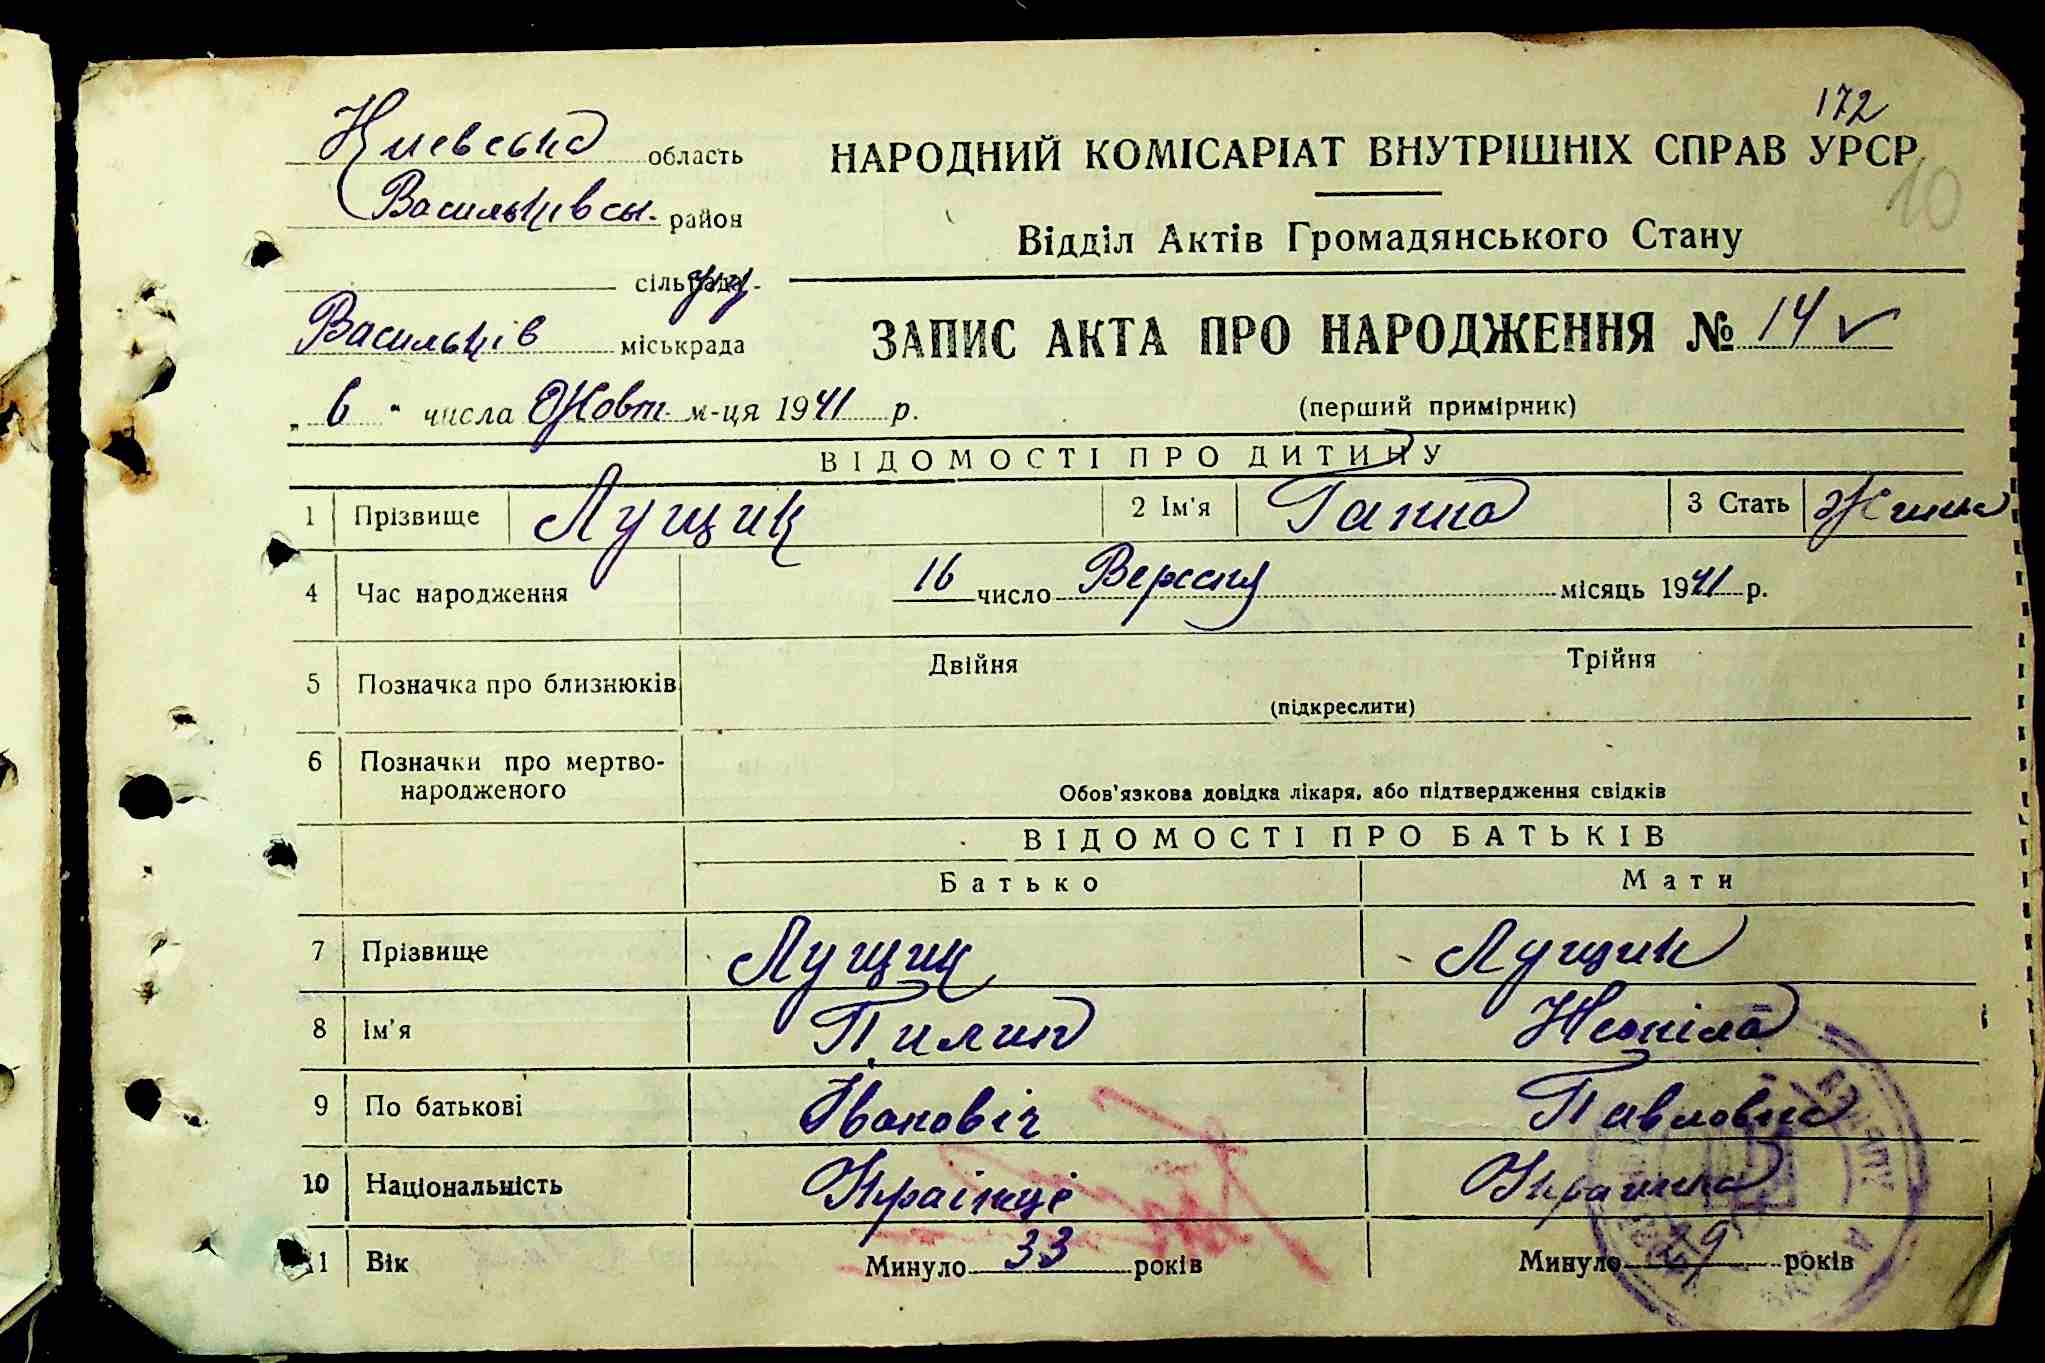 172
Киевська область
НАРОДНИЙ КОМІСАРІАТ ВНУТРІШНІХ СПРАВ УРСР
10
Васильківськ. район
Відділ Актів Громадянського Стану
сільрада
Васильків міськрада
ЗАПИС АКТА ПРО НАРОДЖЕННЯ № 14
„ 6 " числа Жовт. м-ця 1941 р.
(перший примірник)
ВІДОМОСТІ ПРО ДИТИНУ
1 Прізвище Лущик 2 Ім'я Ганна 3 Стать
4 Час народження 16 число Вересня місяць 1941 р.
5 Позначка про близнюків Двійня Трійня
(підкреслити)
6 Позначки про мертво-
народженого
Обов'язкова довідка лікаря, або підтвердження свідків
ВІДОМОСТІ ПРО БАТЬКІВ
Батько Мати
7 Прізвище Лущик Лущик
8 Ім'я Пилип Неоніла
9 По батькові Івановіч Павловна
10 Національність Українці Украинка
11 Вік Минуло 33 років Минуло 29 років